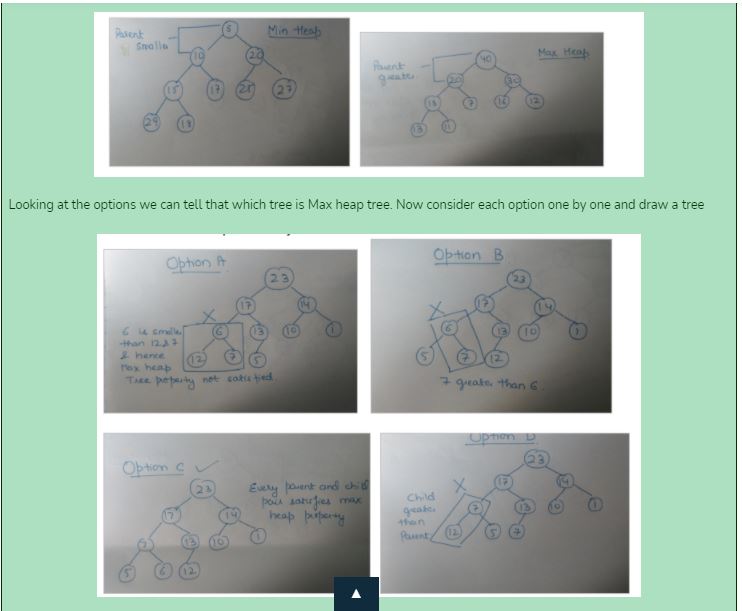 Parent
Smaller
Min Heap
5
10
20
15
17
25
27
29
18
Parent
greater
Max Heap
40
20
30
15
7
16
12
13
11
Looking at the options we can tell that which tree is Max heap tree. Now consider each option one by one and draw a tree
Option A
23
17
14
X
6
13
10
1
12
7
5
6 is smaller
than 12 & 7
& hence
Max heap
Tree property not satisfied.
Option B
23
17
14
X
6
13
10
1
5
7
12
7 greater than 6.
Option C
23
17
14
7
13
10
1
5
6
12
Every parent and child
pair satisfies max
heap property
Option D
23
17
14
X
7
13
10
1
12
5
7
Child
greater
than
Parent